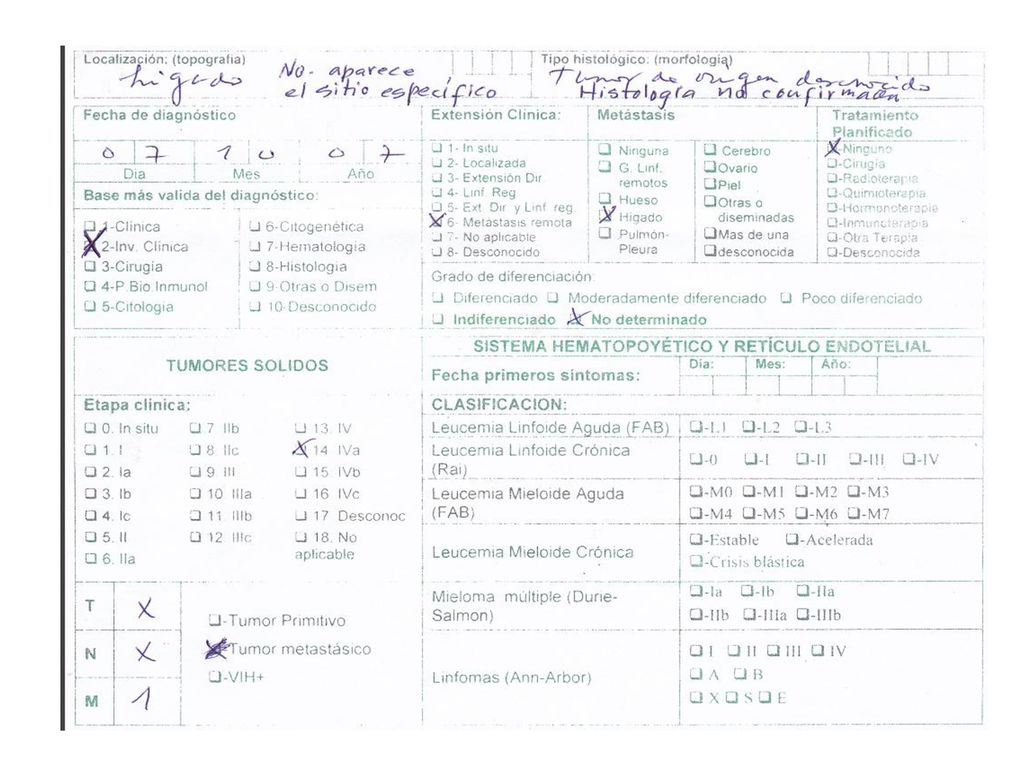 Localización: (topografia)
Tipo histológico: (morfología)
hígado
No. aparece
el sitio específico
Tumor de origen desconocido
Histología no confirmada
Fecha de diagnóstico
07 10 07
Dia Mes Año
Base más valida del diagnóstico:
1-Clínica
2-Inv. Clínica
3-Cirugia
4-P.Bio Inmunol
5-Citologia
6-Citogenética
7-Hematologia
8-Histologia
9-Otras o Disem
10-Desconocido
Extensión Clinica:
1- In situ
2- Localizada
3- Extensión Dir.
4- Linf. Reg
5- Ext. Dir y Linf reg.
X 6- Metastasis remota
7- No aplicable
8- Desconocido
Metástasis
Ninguna
G. Linf.
remotos
Hueso
X Hígado
Pulmón-
Pleura
Cerebro
Ovario
Piel
Otras o
diseminadas
Mas de una
desconocida
Tratamiento
Planificado
X-Ninguno
-Cirugía
-Radioterapia
-Quimioterapia
-Hormonoterapia
-Inmunoterapia
-Otra Terapia
-Desconocida
Grado de diferenciación:
Diferenciado Moderadamente diferenciado Poco diferenciado
Indiferenciado X No determinado
TUMORES SOLIDOS
Etapa clinica:
0. In situ
1. I
2. Ia
3. Ib
4. Ic
5. II
6. IIa
7. IIb
8. IIc
9. III
10. IIIa
11. IIIb
12. IIIc
13. IV
X 14 IVa
15 IVb
16 IVc
17 Desconoc
18. No
aplicable
T X
N X
M 1
-Tumor Primitivo
Tumor metastásico
-VIH+
SISTEMA HEMATOPOYÉTICO Y RETÍCULO ENDOTELIAL
Fecha primeros sintomas:
Dia: Mes: Año:
CLASIFICACION:
Leucemia Linfoide Aguda (FAB) -L1 -L2 -L3
Leucemia Linfoide Crónica
(Rai)
-0 -I -II -III -IV
Leucemia Mieloide Aguda
(FAB)
-M0 -M1 -M2 -M3
-M4 -M5 -M6 -M7
Leucemia Mieloide Crónica
-Estable -Acelerada
-Crisis blástica
Mieloma múltiple (Durie-
Salmon)
-Ia -Ib -IIa
-IIb -IIIa -IIIb
Linfomas (Ann-Arbor)
I II III IV
A B
X S E